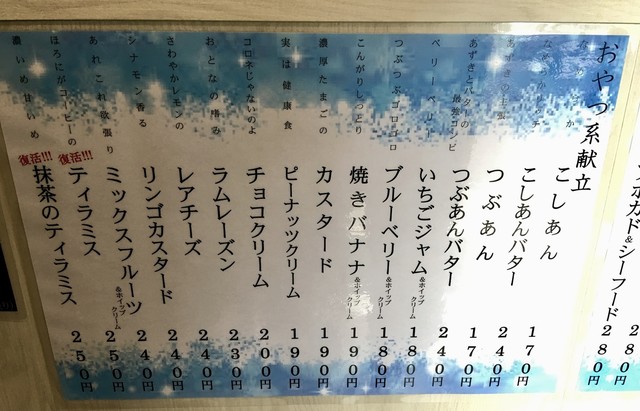 カド&シーフード 280円
280円
おやつ系献立
こしあん 170円
こしあんバター 240円
あずきの主張
つぶあん 170円
あずきとバターの
最強コンビ
つぶあんバター 240円
ベリーベリー
いちごジャム &ホイップクリーム 180円
つぶつぶゴロゴロ
ブルーベリー &ホイップクリーム 180円
こんがりしっとり
焼きバナナ &ホイップクリーム 190円
濃厚たまごの
カスタード 190円
実は健康食
ピーナッツクリーム 190円
コロネじゃないのよ
チョコクリーム 200円
おとなの嗜み
ラムレーズン 230円
さわやかレモンの
レアチーズ 240円
シナモン香る
リンゴカスタード 240円
あれこれ欲張り
ミックスフルーツ &ホイップクリーム 240円
ほろにがコーヒーの
復活!!!
ティラミス 250円
濃いめ甘いめ
復活!!!
抹茶のティラミス 250円